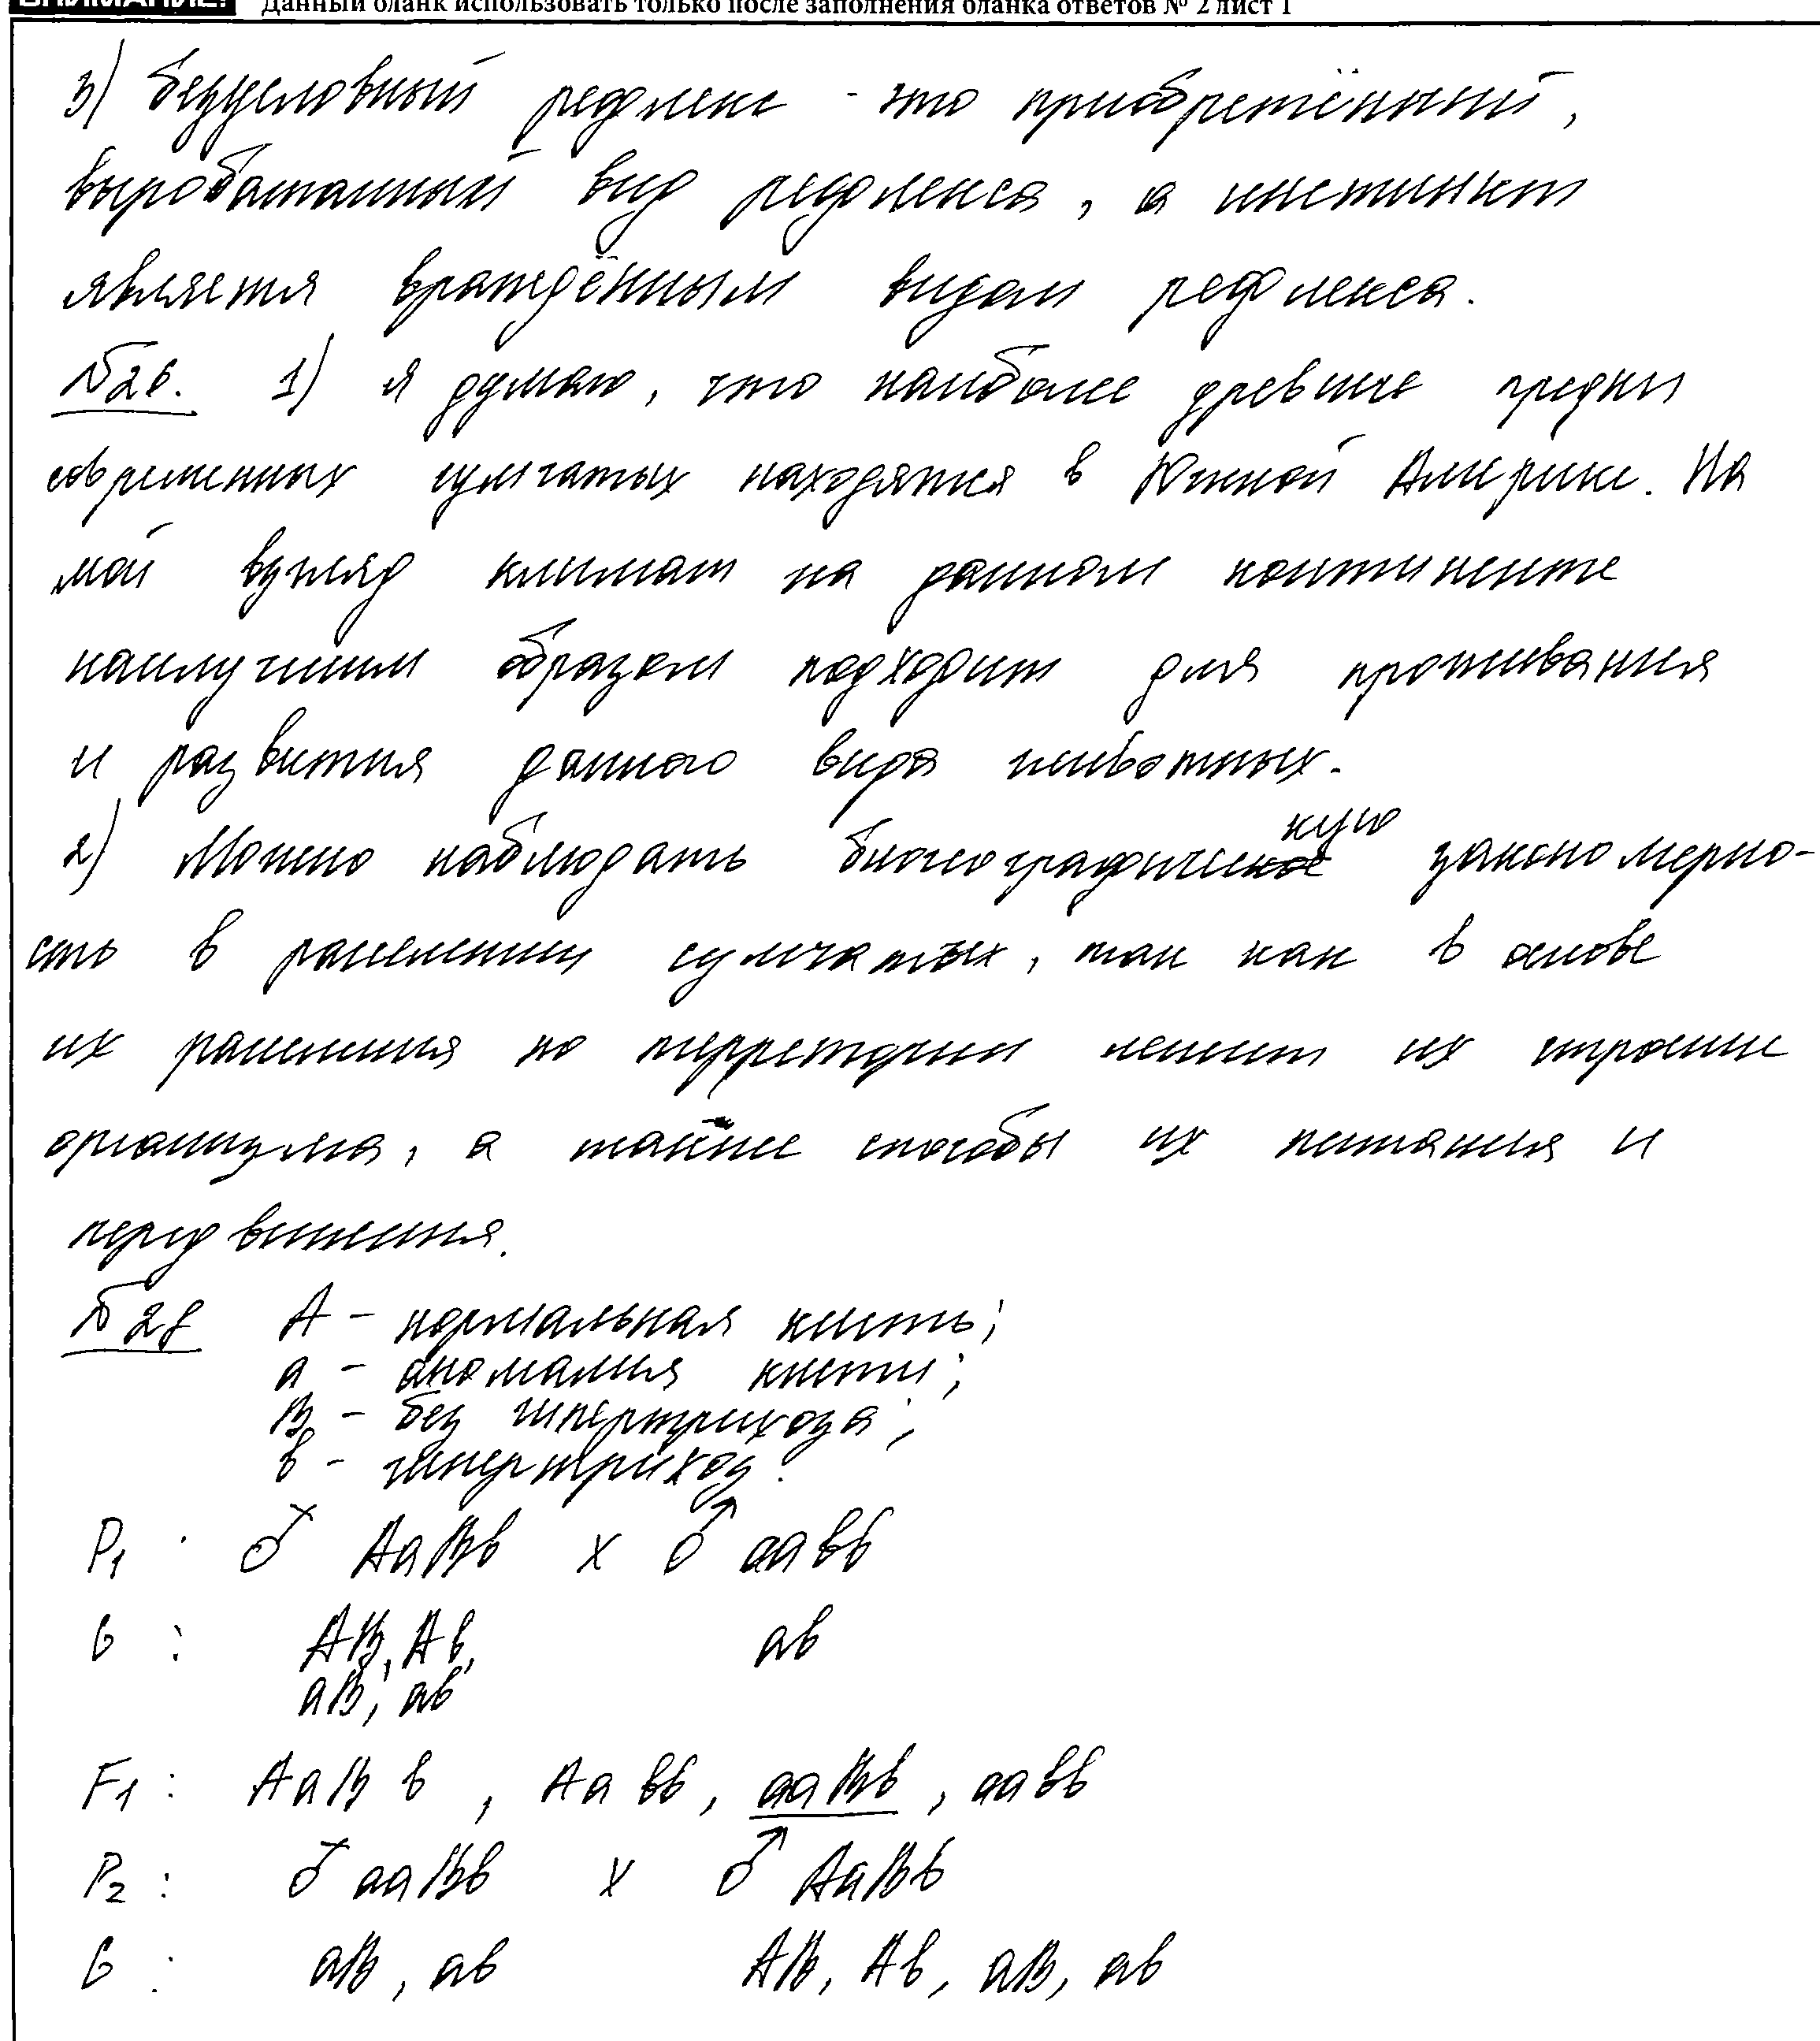 ВНИМАНИЕ! Данный бланк использовать только после заполнения бланка ответов № 2 лист 1
3) безусловный рефлекс - это приобретённый,
выработанный вид рефлекса, а инстинкт
является врождённым видом рефлекса.
№26. 1) я думаю, что наиболее древние предки
современных сумчатых находятся в Южной Америке. На
мой взгляд климат на данном континенте
наилучшим образом подходит для проживания
и развития данного вида животных.
2) Можно наблюдать биогеографическую закономерно-
сть в расселении сумчатых, так как в основе
их расселения по территории лежит их строение
организма, а также способы их питания и
передвижения.
№28 А - нормальная кисть;
а - аномалия кисти;
В - без гипертрихоза;
в - гипертрихоз.
P₁ : ♂ АаВв х ♂ аавв
G : АВ, Ав, ав
аВ, ав
F₁ : АаВв, Аавв, ааВв, аавв
P₂ : ♂ ааВв х ♂ АаВв
G : аВ, ав АВ, Ав, аВ, ав